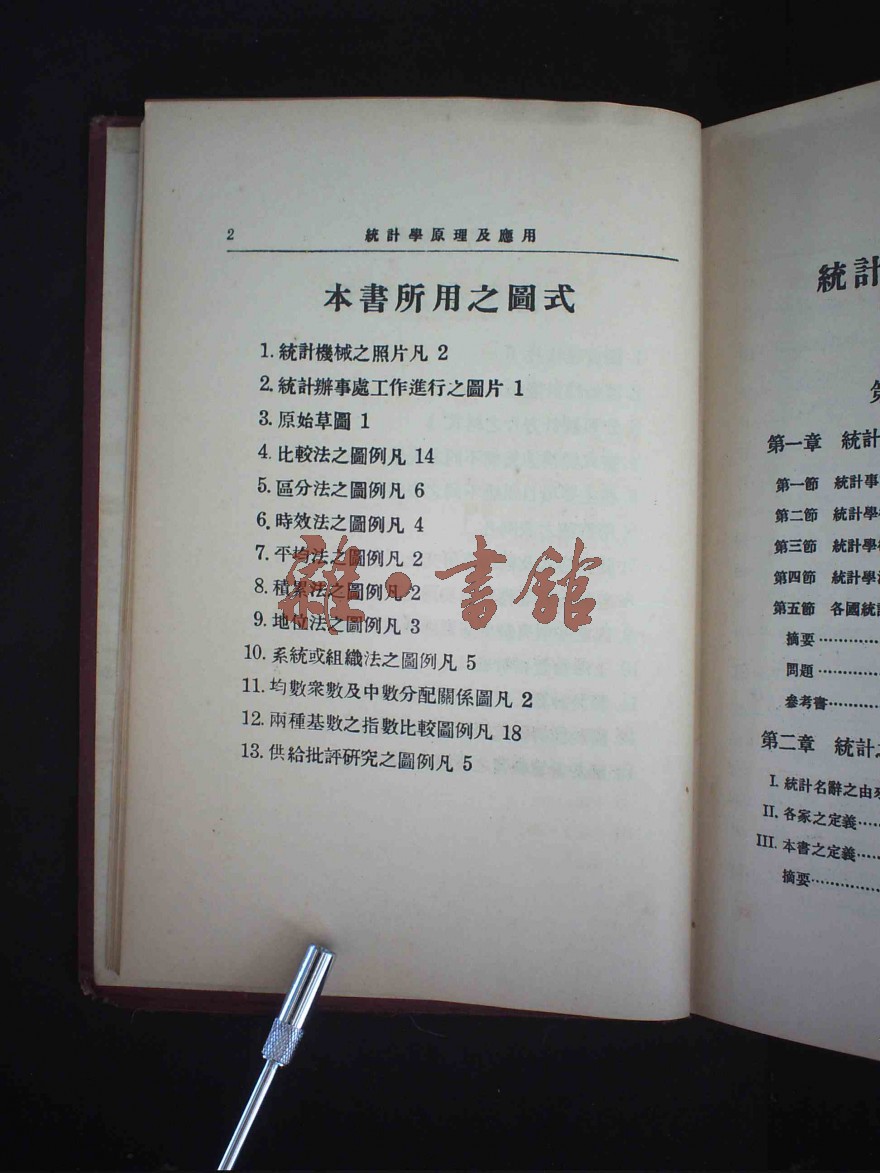 2 統計學原理及應用
本書所用之圖式
1. 統計機械之照片凡 2
2. 統計辦事處工作進行之圖片 1
3. 原始草圖 1
4. 比較法之圖例凡 14
5. 區分法之圖例凡 6
6. 時效法之圖例凡 4
7. 平均法之圖例凡 2
8. 積累法之圖例凡 2
9. 地位法之圖例凡 3
10. 系統或組織法之圖例凡 5
11. 均數衆數及中數分配關係圖凡 2
12. 兩種基數之指數比較圖例凡 18
13. 供給批評研究之圖例凡 5
雜·書館
統計
第一章 統計
第一節 統計事
第二節 統計學
第三節 統計學
第四節 統計學
第五節 各國統
摘要
問題
參考書
第二章 統計
I. 統計名辭之由
II. 各家之定義
III. 本書之定義
摘要